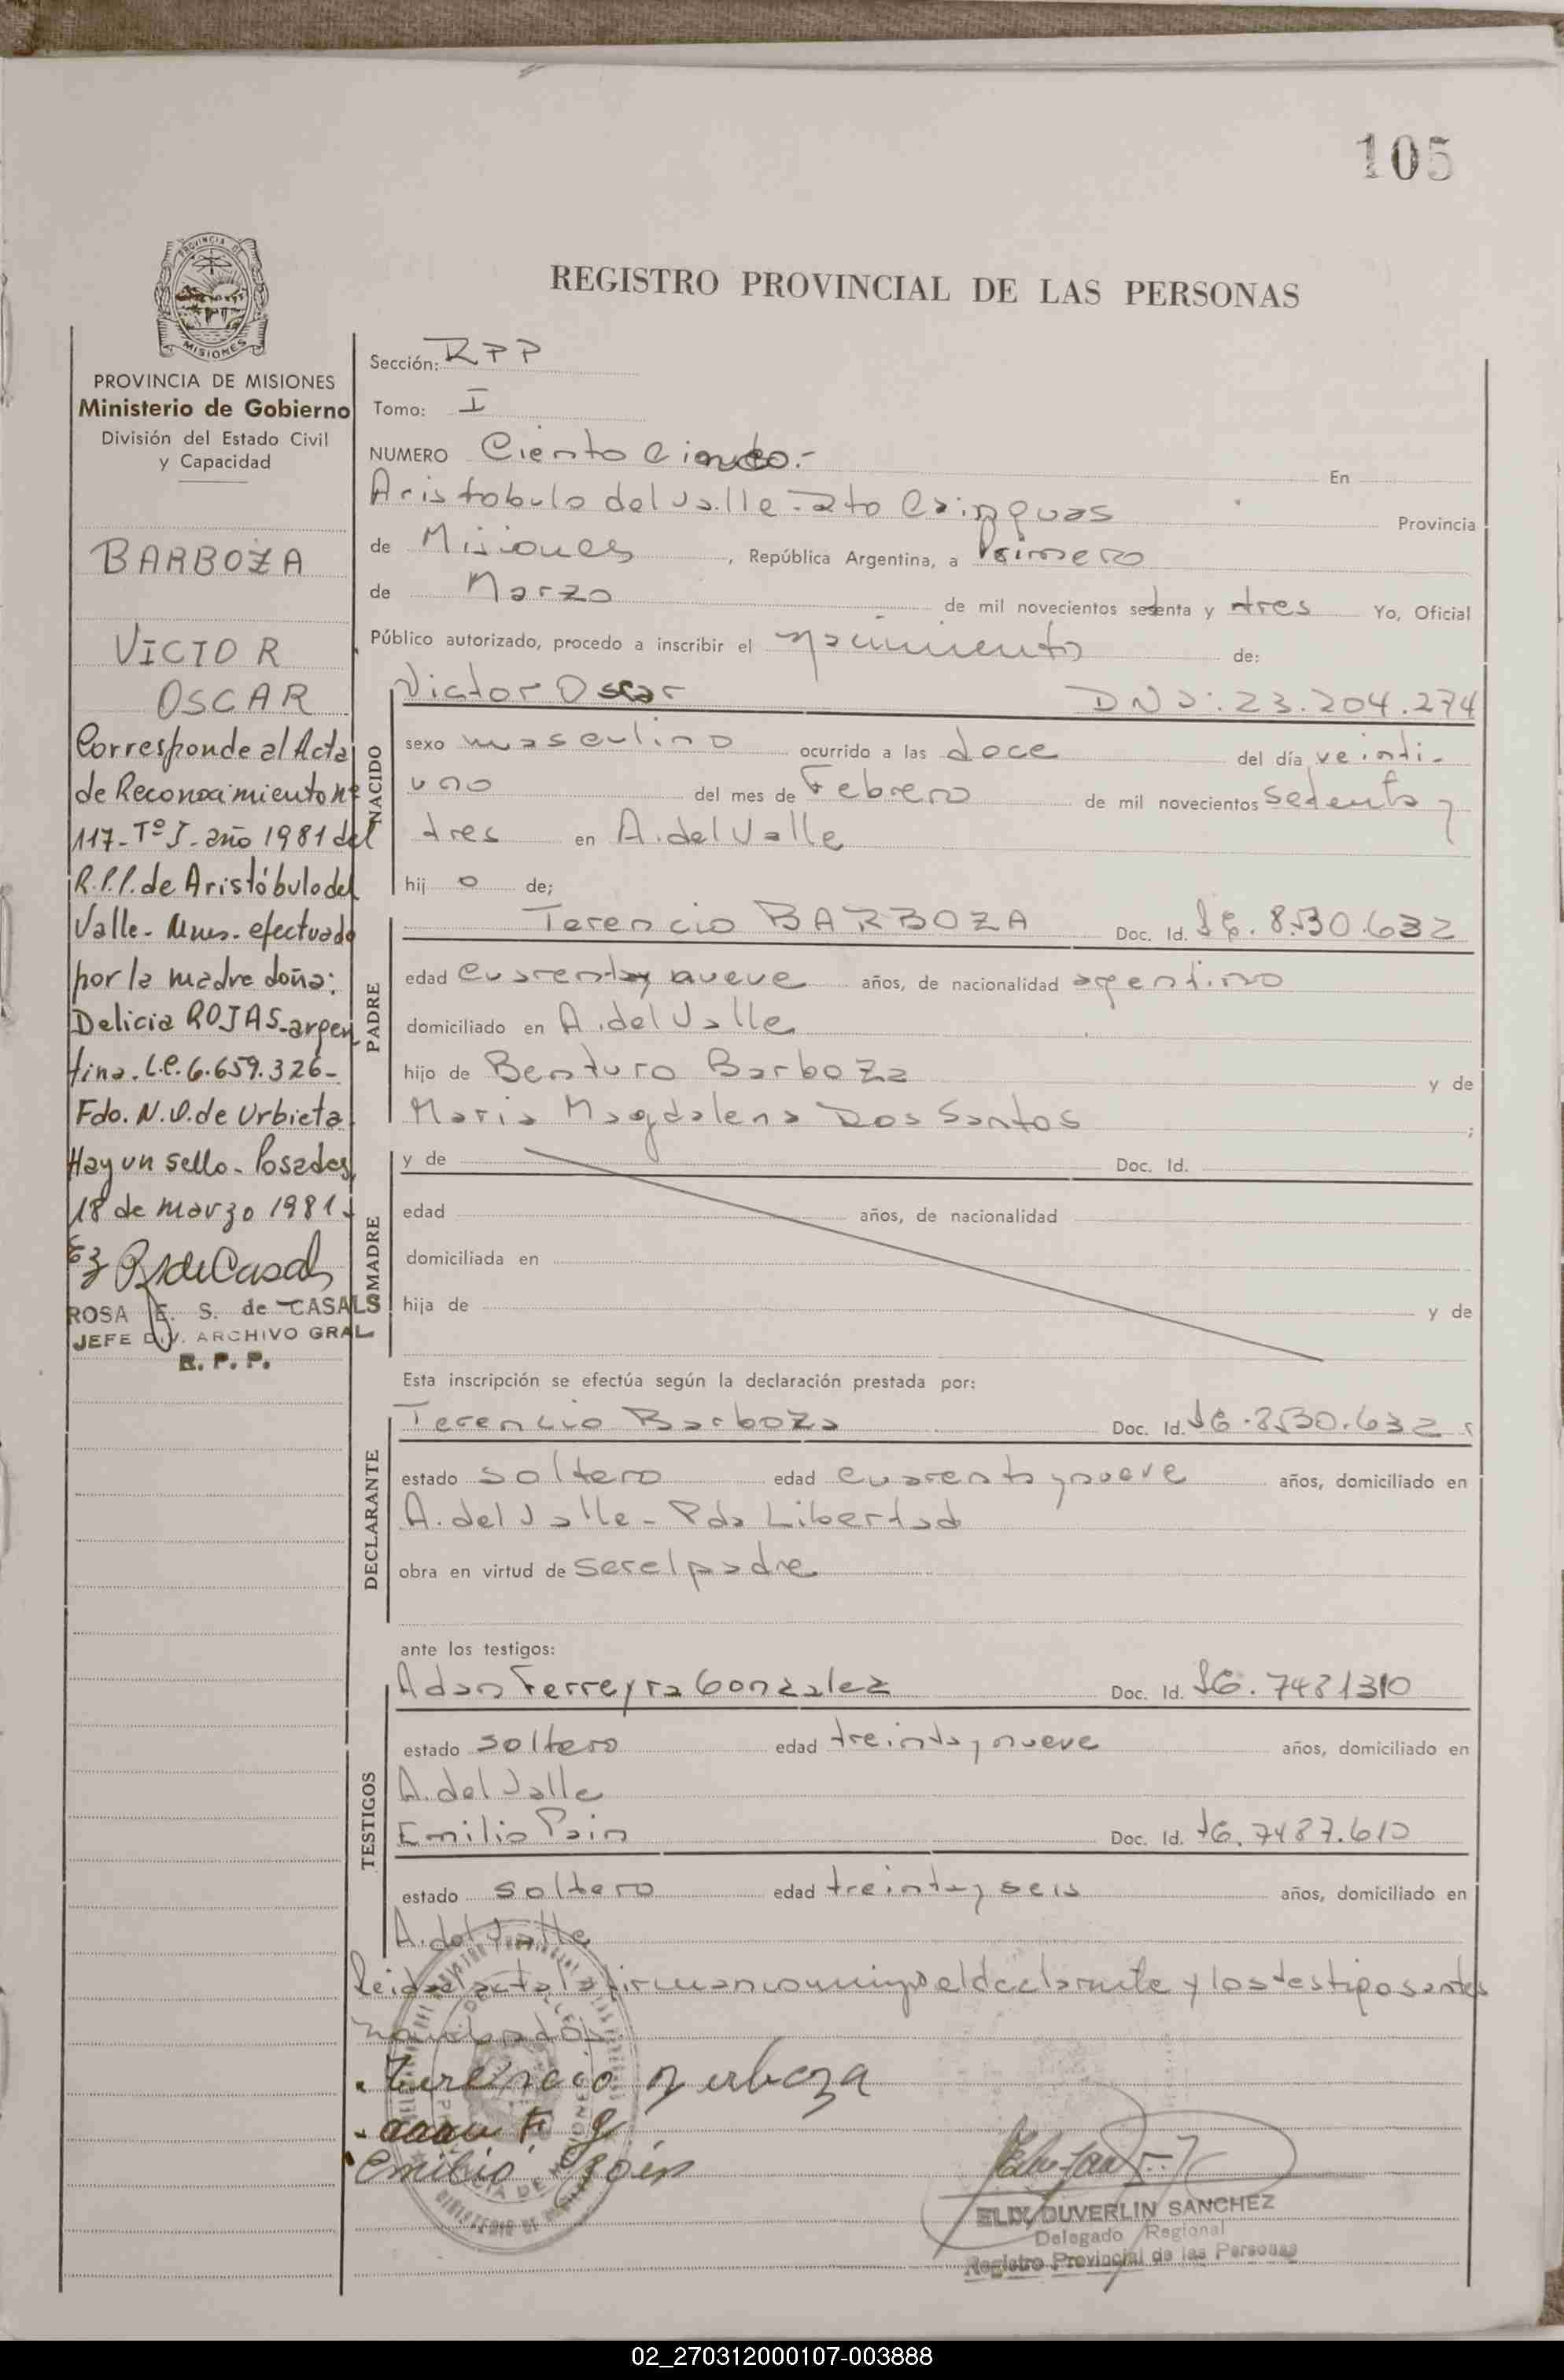 105
PROVINCIA DE
MISIONES
REGISTRO PROVINCIAL DE LAS PERSONAS
PROVINCIA DE MISIONES
Ministerio de Gobierno
División del Estado Civil
y Capacidad
BARBOZA
VICTOR
OSCAR
Corresponde al Acta
de Reconocimiento nº
117-Tº I-año 1981 del
R.P.P. de Aristóbulo del
Valle-Mnes-efectuado
por la madre doña:
Delicia ROJAS-argen
tina. L.C. 6.659.326-
Fdo. N.V. de Urbieta
Hay un sello-Posadas,
18 de marzo 1981-
ROSA E. S. de CASALS
JEFE DIV. ARCHIVO GRAL
R. P. P.
Sección: RPP
Tomo: I
NUMERO Ciento Cinco.- En
Aristobulo del Valle-Dto Cainguas Provincia
de Misiones, República Argentina, a Primero
de Marzo de mil novecientos setenta y tres Yo, Oficial
Público autorizado, procedo a inscribir el nacimiento de:
NACIDO
Victor Oscar DNI: 23.204.274
sexo masculino ocurrido a las doce del día veinti-
uno del mes de Febrero de mil novecientos setenta y
tres en A. del Valle
hij o de;
PADRE
Terencio BARBOZA Doc. Id. 8.530.632
edad cuarenta y nueve años, de nacionalidad argentino
domiciliado en A. del Valle
hijo de Benturo Barboza y de
Maria Magdalena Dos Santos ;
MADRE
y de Doc. Id.
edad años, de nacionalidad
domiciliada en
hija de y de
Esta inscripción se efectúa según la declaración prestada por:
DECLARANTE
Terencio Barboza Doc. Id. 8.530.632
estado soltero edad cuarenta y nueve años, domiciliado en
A. del Valle-Pda Libertad
obra en virtud de ser el padre
ante los testigos:
TESTIGOS
Adan Ferreyra Gonzalez Doc. Id. 7481310
estado soltero edad treinta y nueve años, domiciliado en
A. del Valle
Emilio Pain Doc. Id. 7487.610
estado soltero edad treinta y seis años, domiciliado en
A. del Valle
Leida el acta la firman conmigo el declarante y los testigos antes
ELIX DUVERLIN SANCHEZ
Delegado Regional
Registro Provincial de las Personas
02_270312000107-003888